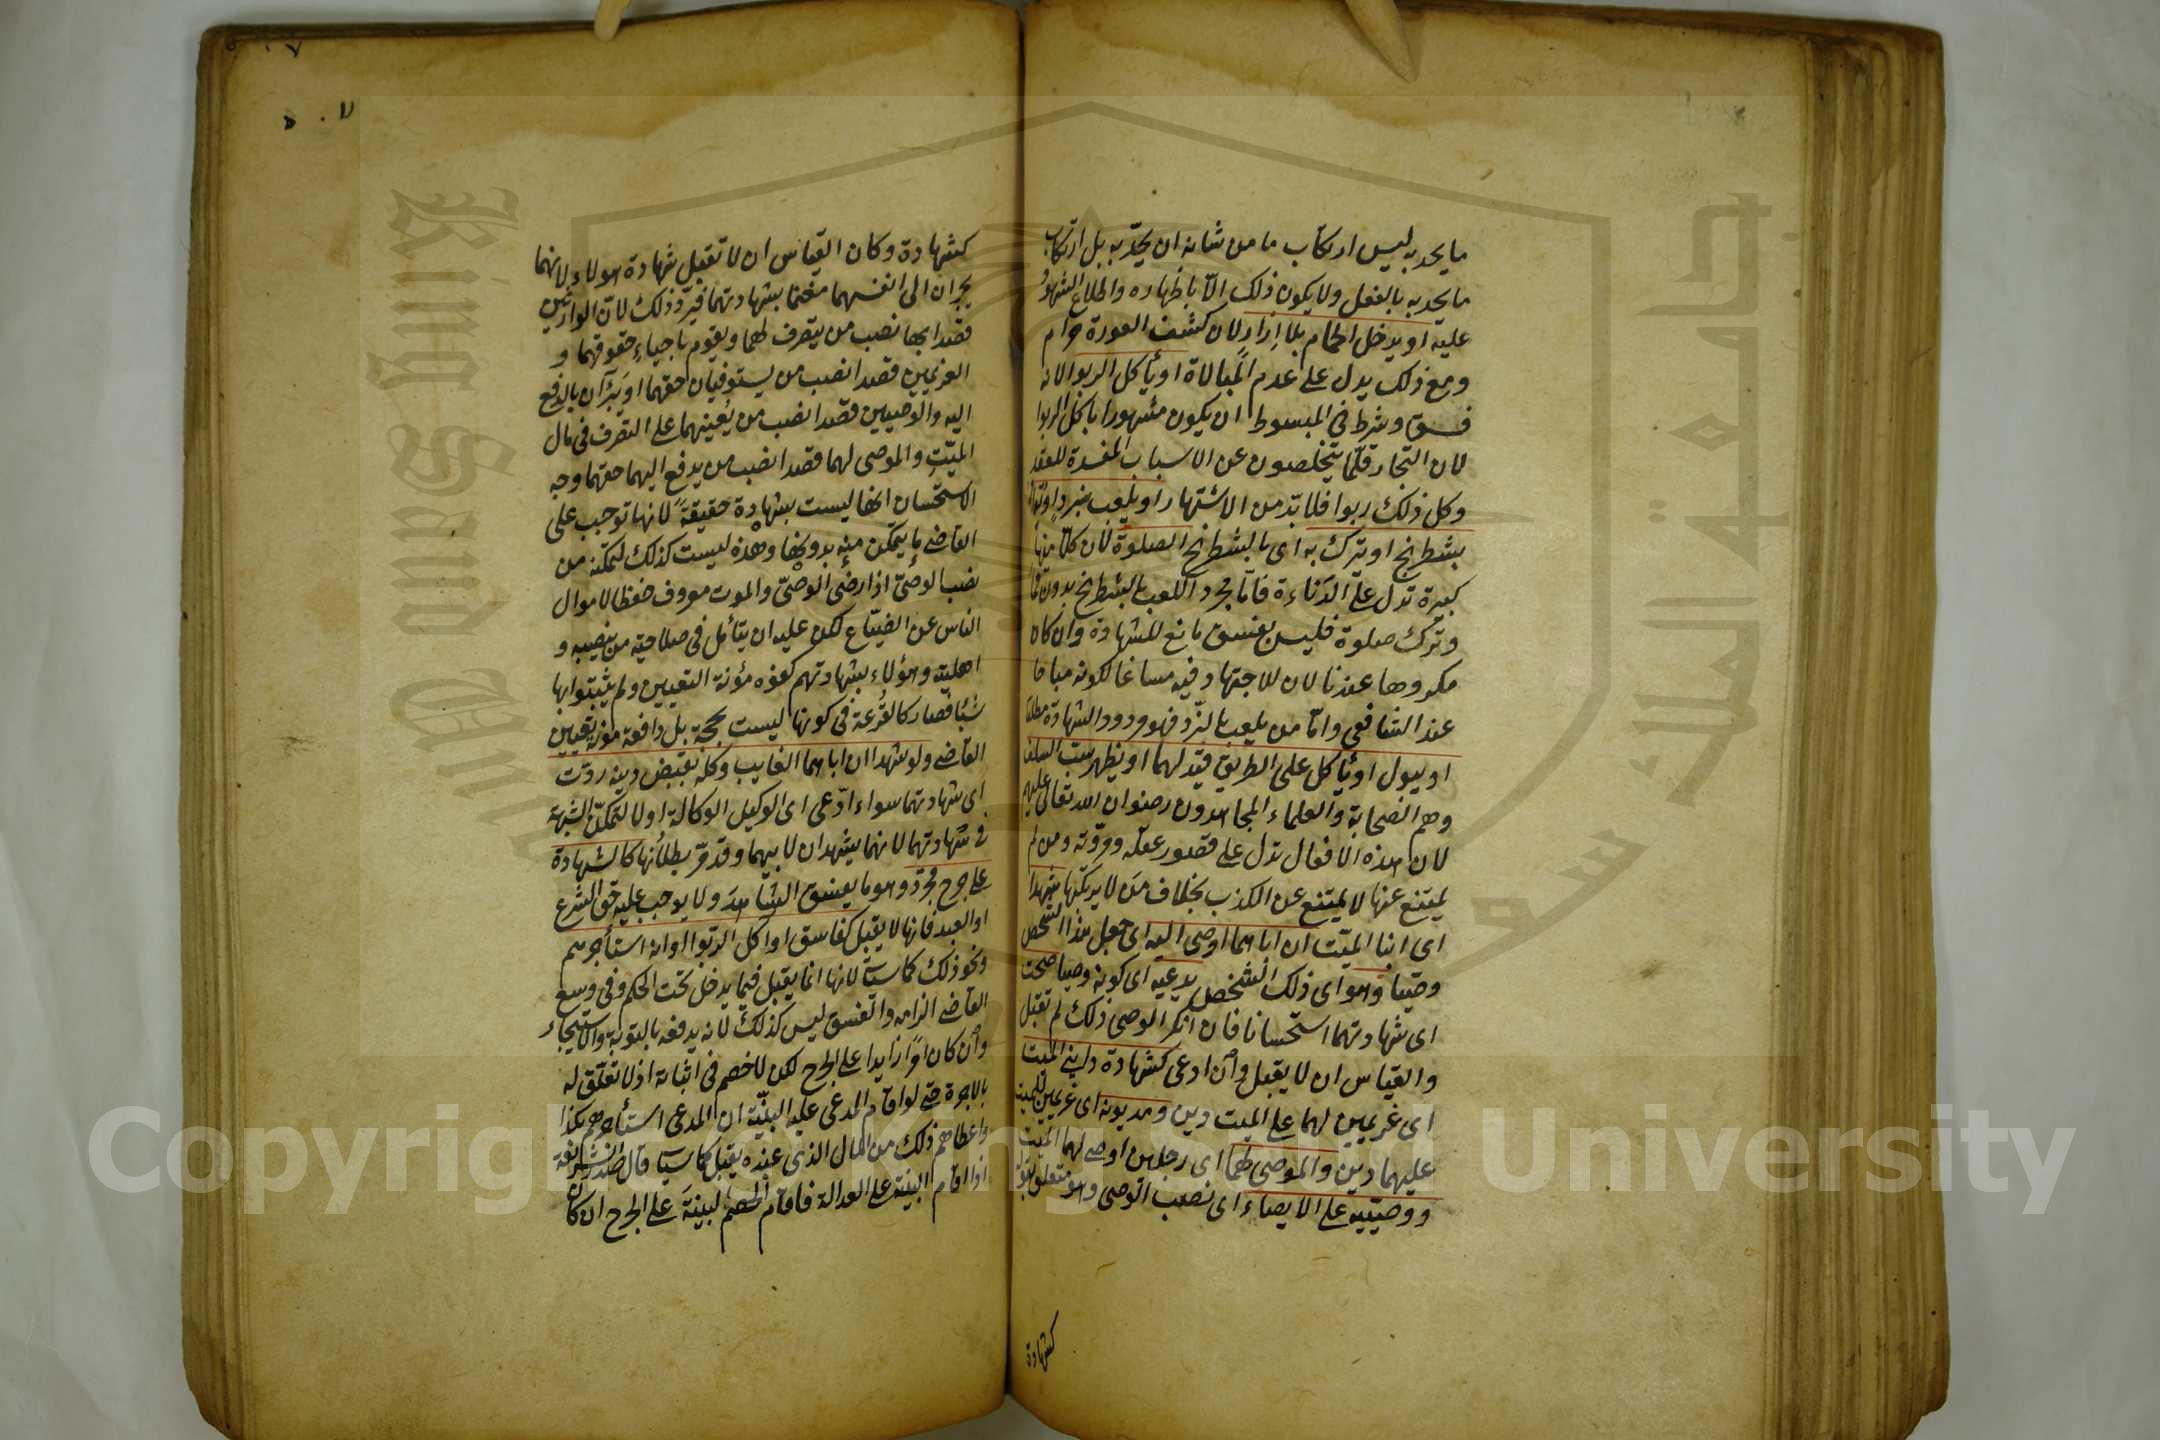 ما يحد به ليس ارتكاب ما من شانه ان يحدّ به بل ارتكاب
ما يحد به بالفعل ولا يكون ذلك الّا باظهاره واطلاع الشهود
عليه او يدخل الحمام بلا ازار لان كشف العورة حرام
ومع ذلك يدل على عدم المبالاة او يأكل الربوا لانه
فسق وشرط في المبسوط ان يكون مشهورا باكل الربوا
لان التجار قلّما يتخلصون عن الاسباب المفسدة للعقد
وكل ذلك ربوا فلا بدّ من الاشتهار او يلعب بنرد او
بشطرنج او يترك به اى بالشطرنج الصلوة لان كلّا منها
كبيرة تدل على الدّناءة فامّا مجرد اللعب بالشطرنج بدون
وترك صلوة فليس بفسق مانع للشهادة وان كان
مكروها عندنا لان للاجتهاد فيه مساغا لكونه مباحا
عند الشافعي وامّا من يلعب بالنّرد فهو مردود الشهادة مطلقا
او يبول او يأكل على الطريق قيّد لهما او يظهر سبّ السلف
وهم الصحابة والعلماء المجاهدون رضوان الله تعالى عليهم
لان هذه الافعال تدل على قصور عقله ومروّته ومن لم
يمتنع عنها لا يمتنع عن الكذب بخلاف من لا يرتكبها شهدا
اى ابنا الميّت ان اباهما اوصى اليه اى جعل هذا الشخص
وصيّا وهو اى ذلك الشخص يدعيه اى كونه وصيا صحت
اى شهادتهما استحسانا فان انكر الموصى ذلك لم تقبل
والقياس ان لا يقبل وان ادعى كشهادة دايني الميت
اى غريمين لهما على الميت دين ومديونه اى غريمين للميت
عليهما دين والموصى لهما اى رجلين اوصى لهما الميت
ووصيّيه على الايصاء اى نصب الوصى وهو متعلق بقوله
كشهادة
كشهادة وكان القياس ان لا تقبل شهادة هولاء لانهما
يجران الى انفسهما مغنما بشهادتهما فيردّ وذلك لانّ الوارثين
قصدا بها نصب من يتصرف لهما ويقوم باحياء حقوقهما و
الغريمين قصدا نصب من يستوفيان حقهما او يبرآن بالدفع
اليه والوصيين قصدا نصب من يعينهما على التصرف في مال
الميّت والموصى لهما قصدا نصب من يدفع اليهما حقهما وجه
الاستحسان انها ليست بشهادة حقيقةً لانها توجب على
القاضى ما يتمكن منه بدونها وهذه ليست كذلك لتمكنه من
نصب الوصىّ اذا رضى الوصىّ والموت معروف حفظا لاموال
الناس عن الضياع لكن عليه ان يتأمل في صلاحية من ينصبه و
اهليته وهؤلاء بشهادتهم كفوه مؤنة التعيين ولم يثبتوا بها
شيئا فصار كالقرعة في كونها ليست بحجة بل دافعة مؤنة تعيين
القاضى ولو شهدا ان اباهما الغايب وكله بقبض دينه ردّت
اى شهادتهما سواء ادّعى اى الوكيل الوكالة او لا لتمكّن الشبهة
في شهادتهما لانهما يشهدان لابيهما وقد مرّ بطلانها كالشهادة
على جرح مجرّد وهو ما يفسق الشاهد ولا يوجب عليه حق الشرع
او العبد فانها لا يقبل كفاسق او اكل الربوا او انه استأجرهم
ونحو ذلك كما سيأتى لانها انما يقبل فيما يدخل تحت الحكم وفي وسع
القاضى الزامه والفسق ليس كذلك لانه يدفعه بالتوبة والاستيجار
وان كان امرا زايدا على الجرح لكن لا خصم في اثباته اذ لا تعلّق له
بالاجرة حتى لو اقام المدعى عليه البيّنة ان المدعى استأجرهم بكذا
واعطاهم ذلك من المال الذى عنده يقبل كما سيأتى قال صدر الشريعة
اذا اقام البينة على العدالة فاقام الخصم البينة على الجرح ان كان
Copyright © King Saud University
King Saud University
جامعة الملك سعود